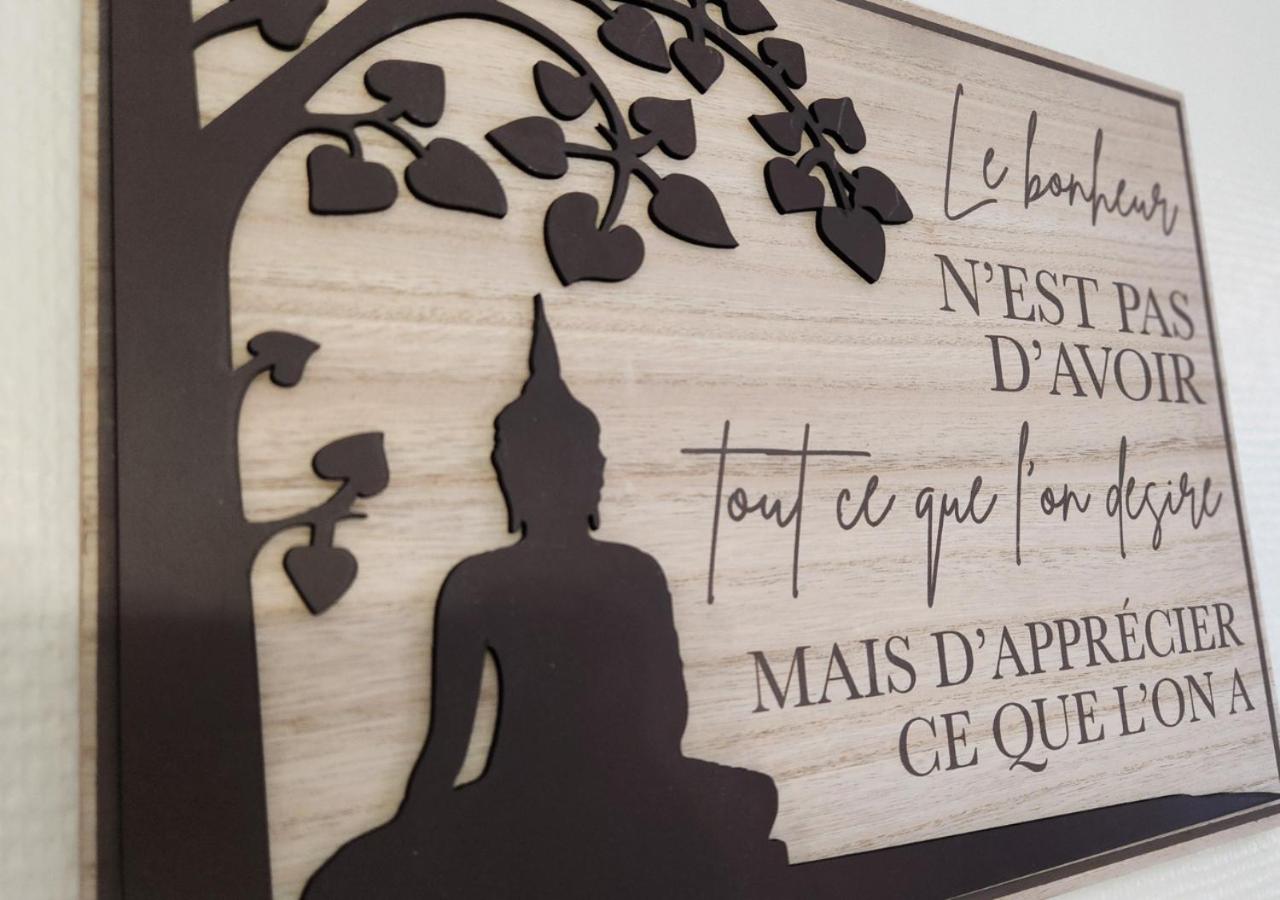 Le bonheur
N'EST PAS
D'AVOIR
tout ce que l'on desire
MAIS D'APPRÉCIER
CE QUE L'ON A